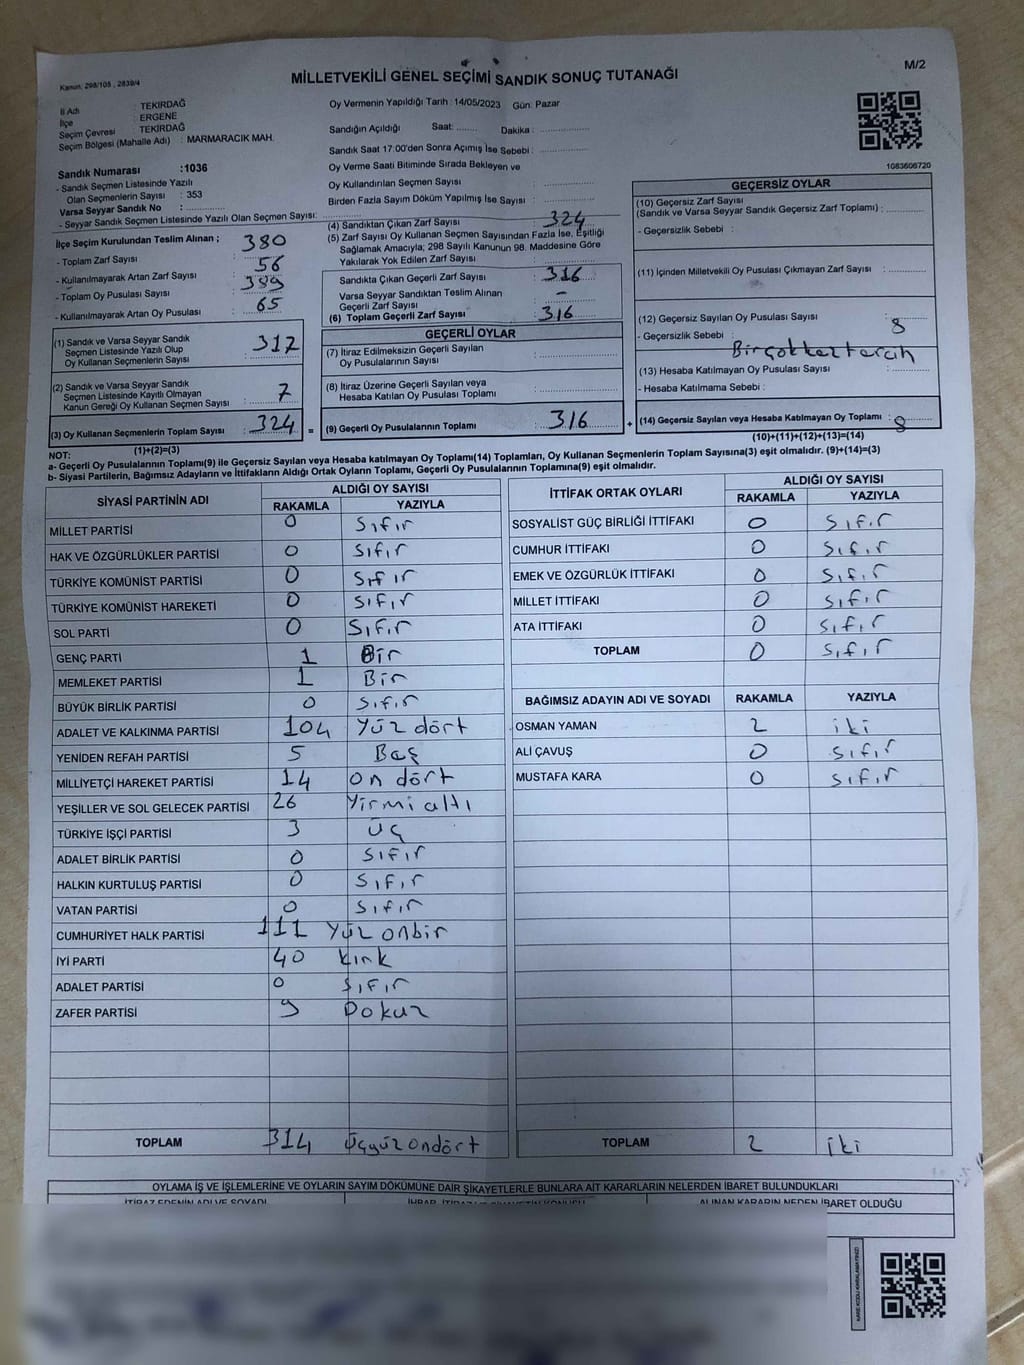 Kanun, 298/105 , 2839/4
MİLLETVEKİLİ GENEL SEÇİMİ SANDIK SONUÇ TUTANAĞI
M/2
İl Adı : TEKİRDAĞ
İlçe : ERGENE
Seçim Çevresi : TEKİRDAĞ
Seçim Bölgesi (Mahalle Adı) : MARMARACIK MAH.
Sandık Numarası :1036
- Sandık Seçmen Listesinde Yazılı
Olan Seçmenlerin Sayısı : 353
Varsa Seyyar Sandık No :
- Seyyar Sandık Seçmen Listesinde Yazılı Olan Seçmen Sayısı:
Oy Vermenin Yapıldığı Tarih : 14/05/2023 Gün: Pazar
Sandığın Açıldığı Saat: Dakika :
Sandık Saat 17:00'den Sonra Açımış İse Sebebi :
Oy Verme Saati Bitiminde Sırada Bekleyen ve
Oy Kullandırılan Seçmen Sayısı :
Birden Fazla Sayım Döküm Yapılmış İse Sayısı :
1083606720
İlçe Seçim Kurulundan Teslim Alınan ;
- Toplam Zarf Sayısı : 380
- Kullanılmayarak Artan Zarf Sayısı : 56
- Toplam Oy Pusulası Sayısı : 389
- Kullanılmayarak Artan Oy Pusulası : 65
(1) Sandık ve Varsa Seyyar Sandık
Seçmen Listesinde Yazılı Olup
Oy Kullanan Seçmenlerin Sayısı : 317
(2) Sandık ve Varsa Seyyar Sandık
Seçmen Listesinde Kayıtlı Olmayan
Kanun Gereği Oy Kullanan Seçmen Sayısı : 7
(3) Oy Kullanan Seçmenlerin Toplam Sayısı : 324
(1)+(2)=(3)
(4) Sandıktan Çıkan Zarf Sayısı : 324
(5) Zarf Sayısı Oy Kullanan Seçmen Sayısından Fazla İse, Eşitliği
Sağlamak Amacıyla; 298 Sayılı Kanunun 98. Maddesine Göre
Yakılarak Yok Edilen Zarf Sayısı :
Sandıkta Çıkan Geçerli Zarf Sayısı : 316
Varsa Seyyar Sandıktan Teslim Alınan
Geçerli Zarf Sayısı : -
(6) Toplam Geçerli Zarf Sayısı : 316
GEÇERLİ OYLAR
(7) İtiraz Edilmeksizin Geçerli Sayılan
Oy Pusulalarının Sayısı :
(8) İtiraz Üzerine Geçerli Sayılan veya
Hesaba Katılan Oy Pusulası Toplamı :
= (9) Geçerli Oy Pusulalarının Toplamı : 316 +
GEÇERSİZ OYLAR
(10) Geçersiz Zarf Sayısı
(Sandık ve Varsa Seyyar Sandık Geçersiz Zarf Toplamı) :
- Geçersizlik Sebebi :
(11) İçinden Milletvekili Oy Pusulası Çıkmayan Zarf Sayısı :
(12) Geçersiz Sayılan Oy Pusulası Sayısı : 8
- Geçersizlik Sebebi : Birçok kez tercih
(13) Hesaba Katılmayan Oy Pusulası Sayısı :
- Hesaba Katılmama Sebebi :
(14) Geçersiz Sayılan veya Hesaba Katılmayan Oy Toplamı : 8
(10)+(11)+(12)+(13)=(14)
NOT:
a- Geçerli Oy Pusulalarının Toplamı(9) ile Geçersiz Sayılan veya Hesaba katılmayan Oy Toplamı(14) Toplamları, Oy Kullanan Seçmenlerin Toplam Sayısına(3) eşit olmalıdır. (9)+(14)=(3)
b- Siyasi Partilerin, Bağımsız Adayların ve İttifakların Aldığı Ortak Oyların Toplamı, Geçerli Oy Pusulalarının Toplamına(9) eşit olmalıdır.
SİYASİ PARTİNİN ADI ALDIĞI OY SAYISI
RAKAMLA YAZIYLA
MİLLET PARTİSİ 0 Sıfır
HAK VE ÖZGÜRLÜKLER PARTİSİ 0 Sıfır
TÜRKİYE KOMÜNİST PARTİSİ 0 Sıfır
TÜRKİYE KOMÜNİST HAREKETİ 0 Sıfır
SOL PARTİ 0 Sıfır
GENÇ PARTİ 1 Bir
MEMLEKET PARTİSİ 1 Bir
BÜYÜK BİRLİK PARTİSİ 0 Sıfır
ADALET VE KALKINMA PARTİSİ 104 Yüz dört
YENİDEN REFAH PARTİSİ 5 Beş
MİLLİYETÇİ HAREKET PARTİSİ 14 on dört
YEŞİLLER VE SOL GELECEK PARTİSİ 26 Yirmi altı
TÜRKİYE İŞÇİ PARTİSİ 3 üç
ADALET BİRLİK PARTİSİ 0 Sıfır
HALKIN KURTULUŞ PARTİSİ 0 Sıfır
VATAN PARTİSİ 0 Sıfır
CUMHURİYET HALK PARTİSİ 111 Yüz onbir
İYİ PARTİ 40 kırk
ADALET PARTİSİ 0 Sıfır
ZAFER PARTİSİ 9 Dokuz
TOPLAM 314 üçyüz ondört
İTTİFAK ORTAK OYLARI ALDIĞI OY SAYISI
RAKAMLA YAZIYLA
SOSYALİST GÜÇ BİRLİĞİ İTTİFAKI 0 Sıfır
CUMHUR İTTİFAKI 0 Sıfır
EMEK VE ÖZGÜRLÜK İTTİFAKI 0 Sıfır
MİLLET İTTİFAKI 0 Sıfır
ATA İTTİFAKI 0 Sıfır
TOPLAM 0 Sıfır
BAĞIMSIZ ADAYIN ADI VE SOYADI RAKAMLA YAZIYLA
OSMAN YAMAN 2 iki
ALİ ÇAVUŞ 0 Sıfır
MUSTAFA KARA 0 Sıfır
TOPLAM 2 iki
OYLAMA İŞ VE İŞLEMLERİNE VE OYLARIN SAYIM DÖKÜMÜNE DAİR ŞİKAYETLERLE BUNLARA AİT KARARLARIN NELERDEN İBARET BULUNDUKLARI
İTİRAZ EDENİN ADI VE SOYADI
ALINAN KARARIN NEDEN İBARET OLDUĞU